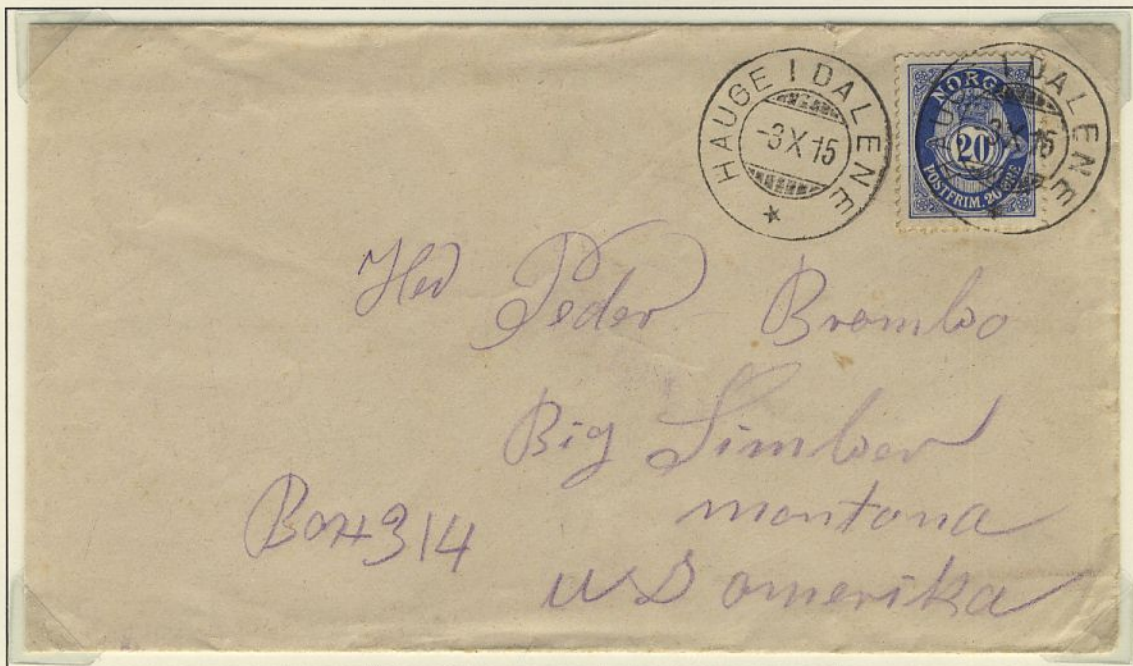 HAUGE I DALENE
-3 X 15
NORGE
20
POSTFRIM. 20 ØRE
HAUGE I DALENE
-3 X 15
Peder
Big Timber
montana
Box 314
U S amerika